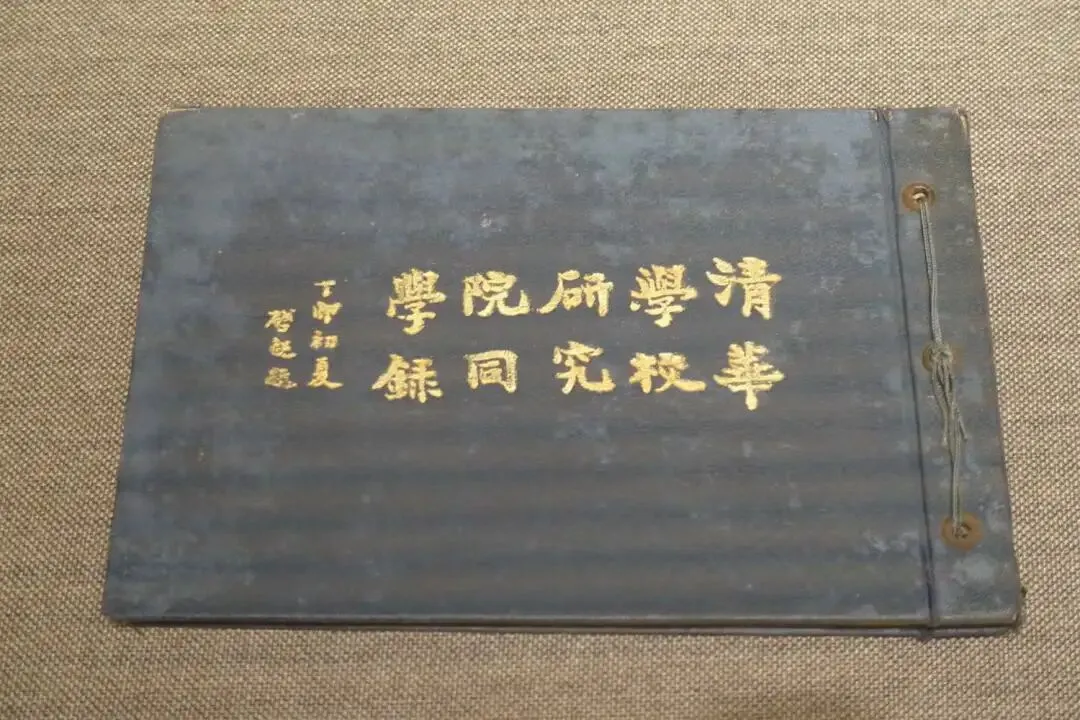 清華
學校
研究
院同
學録
丁卯初夏
啓超題